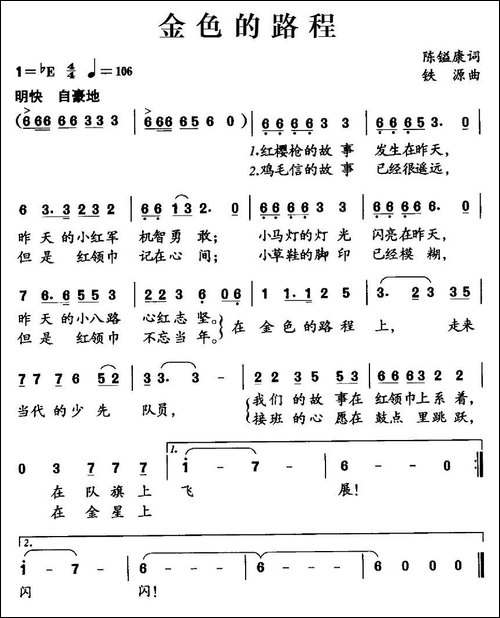 金色的路程
陈镒康词
1=♭E 4/4 ♩=106
铁 源曲
明快 自豪地
(6 666 666 3 3 3 | 6 666 656 0) | 6 6 6 6 6 3 3 | 6 6 6 5 3. 0 |
1.红樱枪的故 事 发生在昨天,
2.鸡毛信的故 事 已经很遥远,
6 3. 3 2 3 2 | 6 6 1 3 2. 0 | 6 6 6 6 6 3 3 | 6 6 6 5 3. 0 |
昨 天 的小红军 机智勇 敢; 小马灯的灯 光 闪亮在昨天,
但 是 红领巾 记在心 间; 小草鞋的脚 印 已经模 糊,
7 6. 6 5 5 3 | 2 2 3 6 0 6 | 1 1. 1 2 5 | 3. 2 3 3 5 |
昨 天 的小八路 心红志 坚。 在 金 色的路程 上, 走来
但 是 红领巾 不忘当 年。
7 7 7 6 5 2 | 3 3. 3 - | 2 2 3 5 5 3 | 6 6 6 3 2 2 0 |
当代 的少 先 队员, 我们的故 事在 红领巾上系 着,
接班 的心 愿在 鼓点 里跳跃,
0 3 7 7 7 | 1 - 7 - | 6 - - 0 :|
1.
在 队旗 上 飞 展!
在 金星 上
2.
1 - 7 - | 6 - - - | 6 - - - | 6 0 0 0 ‖
闪 闪!